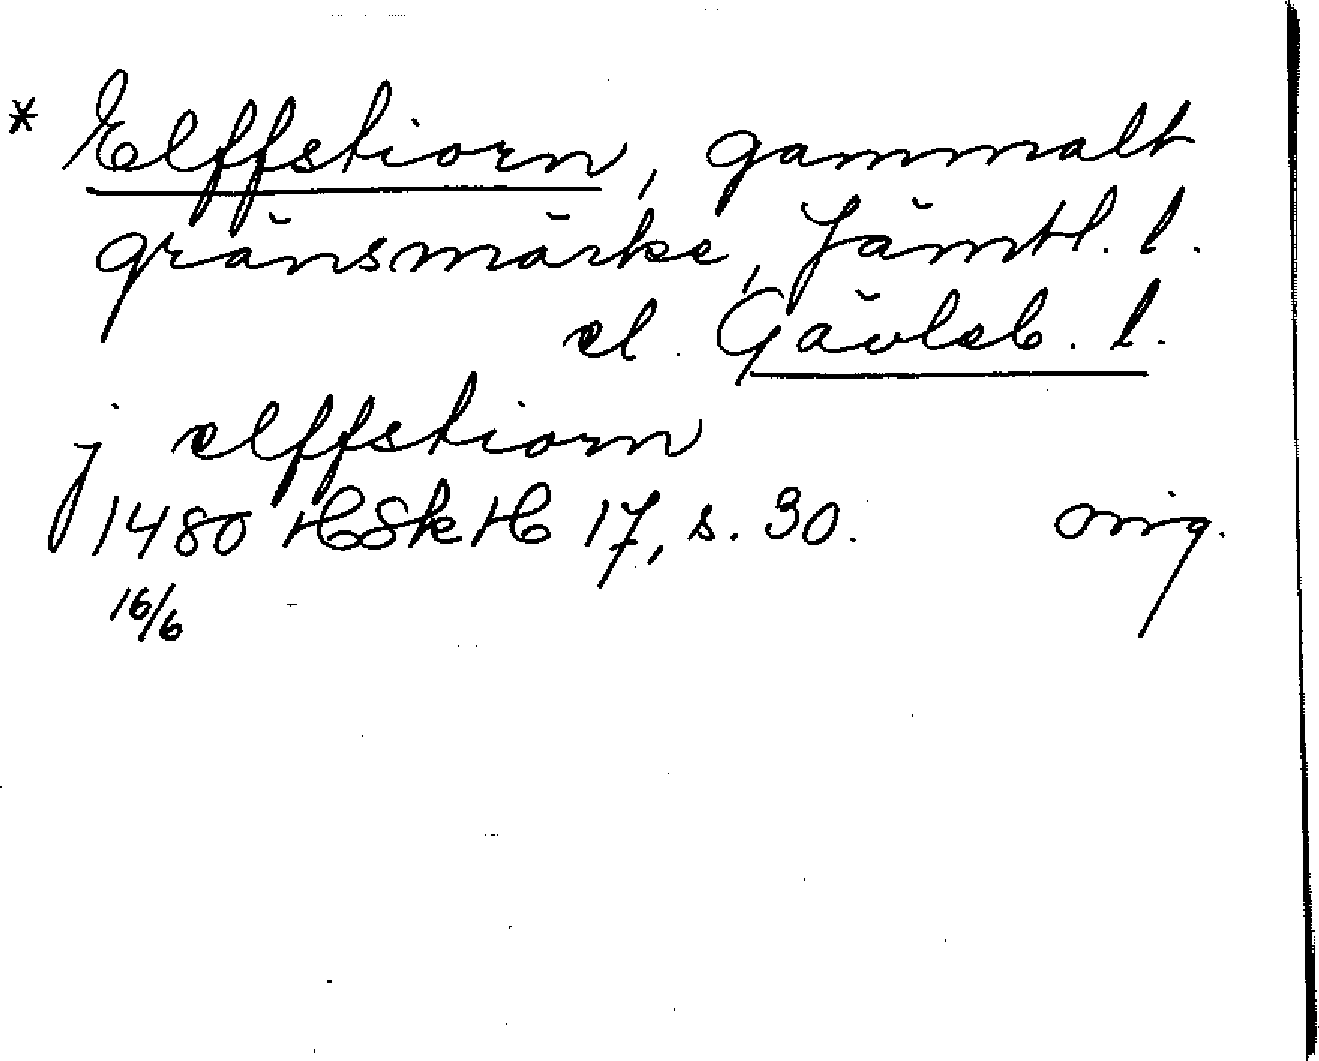 * Elffstiorn, gammalt
gränsmärke, Jämtl. l.
el. Gävleb. l.
j elffstiorn
1480 HSkH 17, s. 30. orig.
16/6